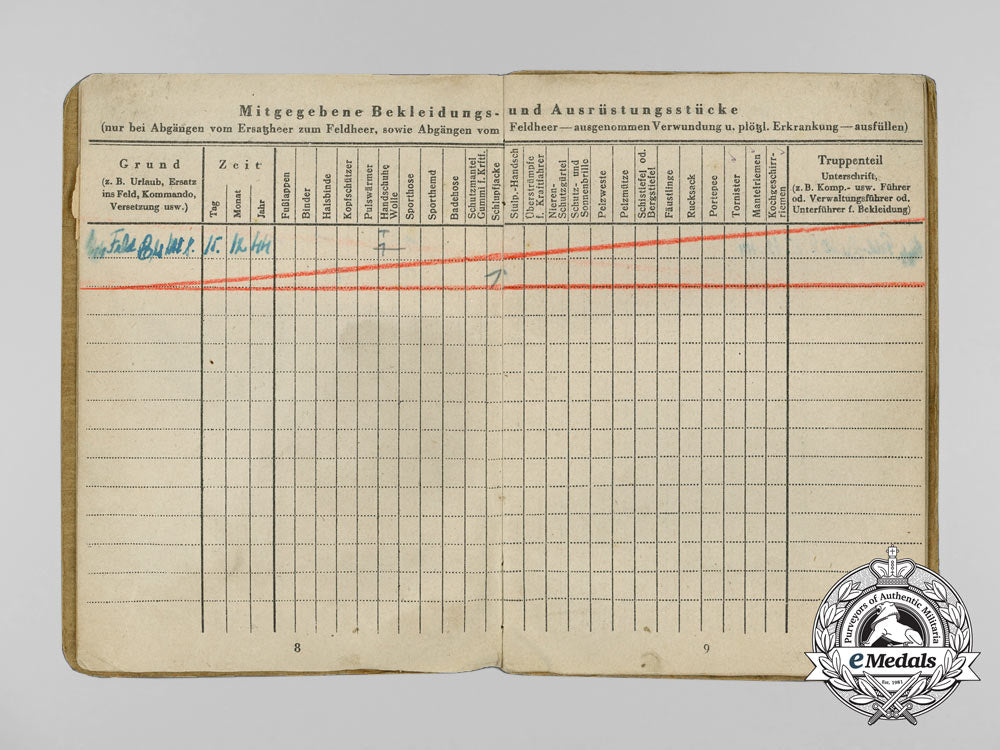 Mitgegebene Bekleidungs- und Ausrüstungsstücke
(nur bei Abgängen vom Ersatzheer zum Feldheer, sowie Abgängen vom Feldheer — ausgenommen Verwundung u. plötzl. Erkrankung — ausfüllen)
Grund
(z. B. Urlaub, Ersatz
ins Feld, Kommando,
Versetzung usw.)
Zeit
Tag
Monat
Jahr
Fußlappen
Binder
Halsbinde
Kopfschützer
Pulswärmer
Handschuhe
Wolle
Sporthose
Sporthemd
Badehose
Schutzmantel
Gummi f. Krftf.
Schlupfjacke
Stulp.-Handsch
Überstrümpfe
f. Kraftfahrer
Nieren-
Schutzgürtel
Schutz- und
Sonnenbrille
Pelzweste
Pelzmütze
Schistiefel od.
Bergstiefel
Fäustlinge
Rucksack
Portepee
Tornister
Mantelriemen
Kochgeschirr-
riemen
Truppenteil
Unterschrift,
(z. B. Komp.- usw. Führer
od. Verwaltungsführer od.
Unterführer f. Bekleidung)
Feld 15. 12 44
1
1
8
9
Purveyors of Authentic Militaria
eMedals
Est. 1981